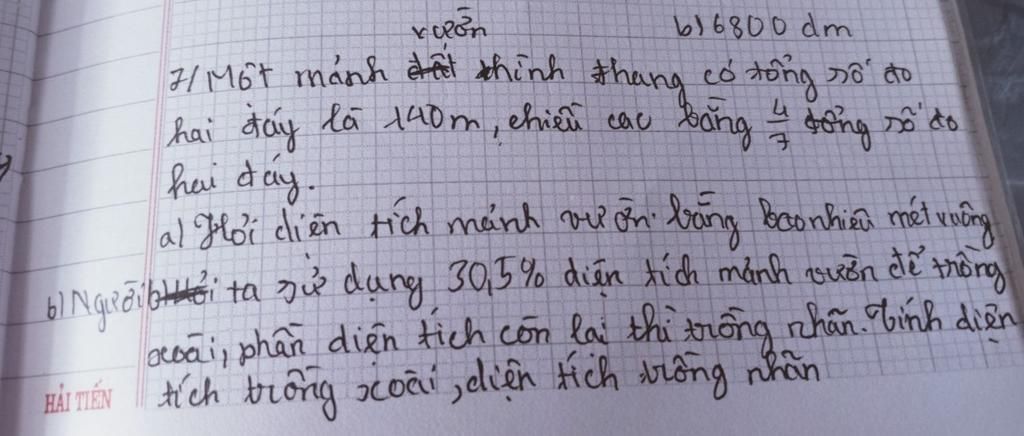 vườn b) 6800 dm
7/ Một mảnh đất hình thang có tổng số đo
hai đáy là 140m, chiều cao bằng 4/7 tổng số đo
hai đáy.
a) Hỏi diện tích mảnh vườn bằng bao nhiêu mét vuông
b) Người ta sử dụng 30,5% diện tích mảnh vườn để trồng
xoài, phần diện tích còn lại thì trồng nhãn. Tính diện
tích trồng xoài, diện tích trồng nhãn
HẢI TIẾN